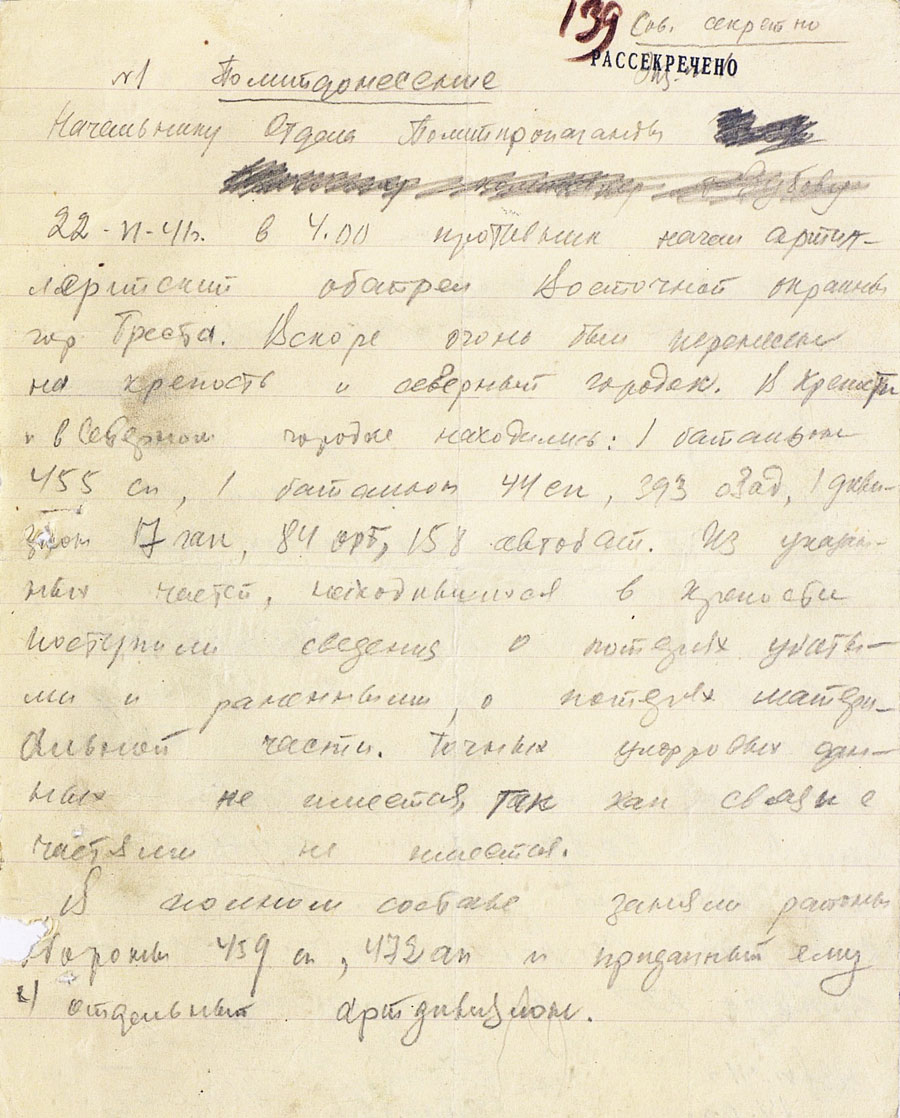 139 Сов. секретно
РАССЕКРЕЧЕНО
Экз. №1
№1 Политдонесение
Начальнику Отдела Политпропаганды
22-VI-41г. в 4.00 противник начал артил-
лерийский обстрел Восточной окраины
гор Бреста. Вскоре огонь был перенесен
на крепость и северный городок. В Крепости
и в Северном городке находились: 1 батальон
455 сп, 1 батальон 44 сп, 393 озад, 1 диви-
зион 17 гап, 84 орб, 158 автобат. Из указан-
ных частей, находившихся в крепости
поступили сведения о потерях убиты-
ми и раненными, о потерях матери-
альной части. Точных цифровых дан-
ных не имеется, так как связи с
частями не имеется.
В полном составе заняли районы
обороны 459 сп, 472 ап и приданный ему
отдельный артдивизион.